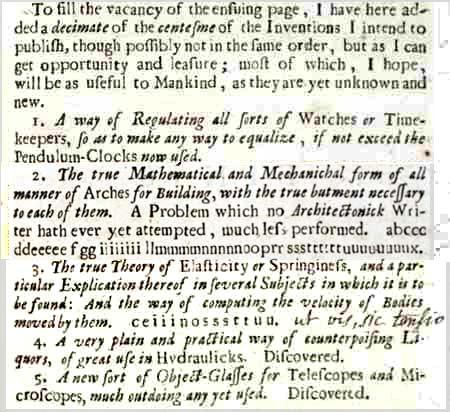 To fill the vacancy of the ensuing page, I have here ad-
ded a decimate of the centesme of the Inventions I intend to
publish, though possibly not in the same order, but as I can
get opportunity and leasure; most of which, I hope,
will be as useful to Mankind, as they are yet unknown and
new.
1. A way of Regulating all sorts of Watches or Time-
keepers, so as to make any way to equalize, if not exceed the
Pendulum-Clocks now used.
2. The true Mathematical and Mechanichal form of all
manner of Arches for Building, with the true butment necessary
to each of them. A Problem which no Architectonick Wri-
ter hath ever yet attempted, much less performed. abcccc
ddeeeee f gg iiiiiiii llmmmmnnnnnooprr sssttttttuuuuuuuux.
3. The true Theory of Elasticity or Springiness, and a par-
ticular Explication thereof in several Subjects in which it is to
be found: And the way of computing the velocity of Bodies
moved by them. ceiiinosssttuu. ut vis, sic tensio
4. A very plain and practical way of counterpoising Li-
quors, of great use in Hydraulicks. Discovered.
5. A new sort of Object-Glasses for Telescopes and Mi-
croscopes, much outdoing any yet used. Discovered.